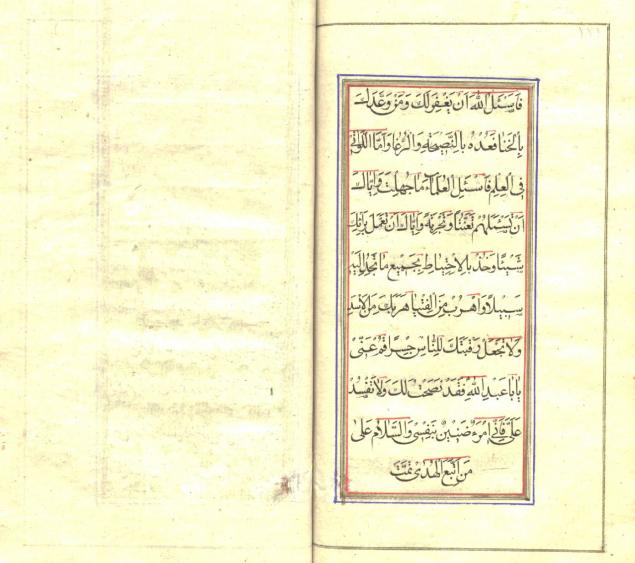 ١٢١
فَاسْئَلِ اللّٰهَ اَنْ يَغْفِرَ لَكَ وَمَنْ وَعَدَكَ
بِالْخَنَا فَعِدْهُ بِالنَّصِيحَةِ وَالرِّعَا وَاَمَّا اللَّوَاتِي
فِي الْعِلْمِ فَاسْئَلِ الْعُلَمَاءَ مَا جَهِلْتَ وَاِيَّاكَ
اَنْ تَسْئَلَهُمْ تَعَنُّتًا وَتَجْرِبَةً وَاِيَّاكَ اَنْ تَعْمَلَ بِرَأْيِكَ
شَيْئًا وَخُذْ بِالْاِحْتِيَاطِ بِجَمِيعِ مَا تَجِدُ اِلَيْهِ
سَبِيلًا وَاهْرُبْ مِنَ الْفُتْيَا هَرَبَكَ مِنَ الْاَسَدِ
وَلَا تَجْعَلْ رَقَبَتَكَ لِلنَّاسِ جِسْرًا قُمْ عَنِّي
يَا اَبَا عَبْدِ اللّٰهِ فَقَدْ نَصَحْتُ لَكَ وَلَا تُفْسِدْ
عَلَيَّ فَاِنِّي امْرَءٌ ضَنِينٌ بِنَفْسِي وَالسَّلَامُ عَلٰى
مَنِ اتَّبَعَ الْهُدٰى تمّت